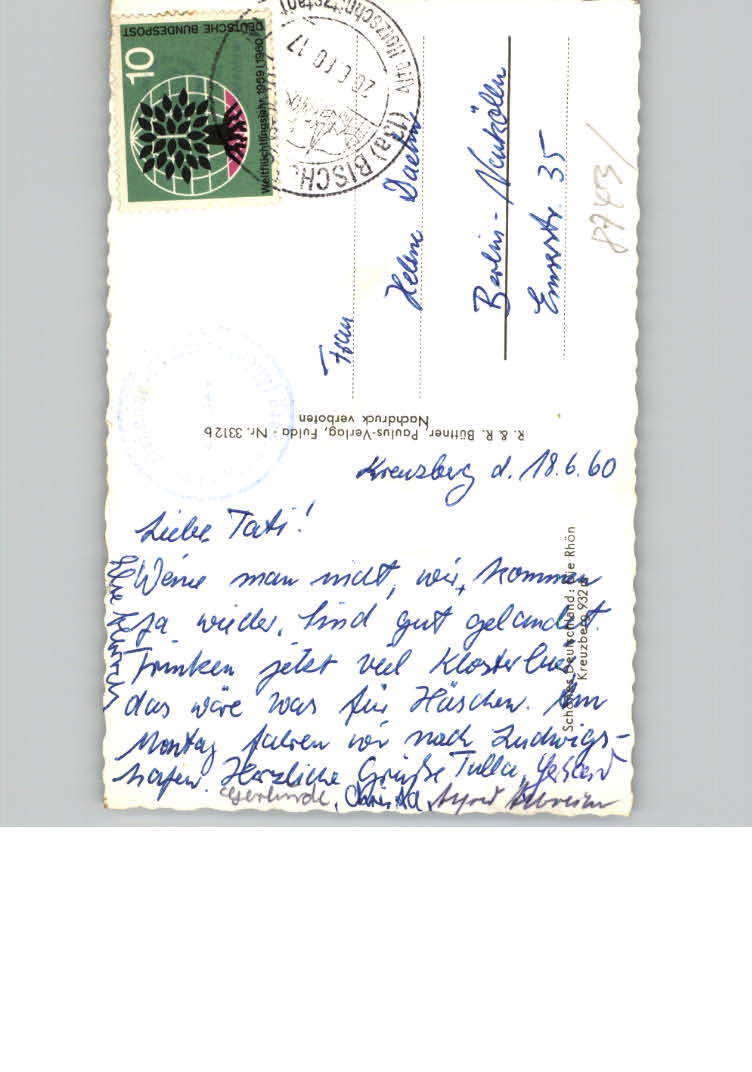 DEUTSCHE BUNDESPOST
10
Weltflüchtlingsjahr 1959|1960
Alte Holzschnitzstadt
20.6.60.17
(13a) BISCH
Frau
Helene Daehn
Berlin-Neukölln
Emserstr. 35
8743/
R. & R. Büttner, Paulus-Verlag, Fulda · Nr. 3312 b
Nachdruck verboten
Schönes Deutschland: Die Rhön
Kreuzberg 932 m
Kreuzberg d. 18.6.60
Liebe Tati!
Weine man nicht, wir kommen
ja wieder. Sind gut gelandet.
Trinken jetzt viel Klosterbier
das wäre was für Häschen. Am
Montag fahren wir nach Ludwigs-
hafen. Herzliche Grüße Tulla, Gerhard
Gerlinde, Christa,